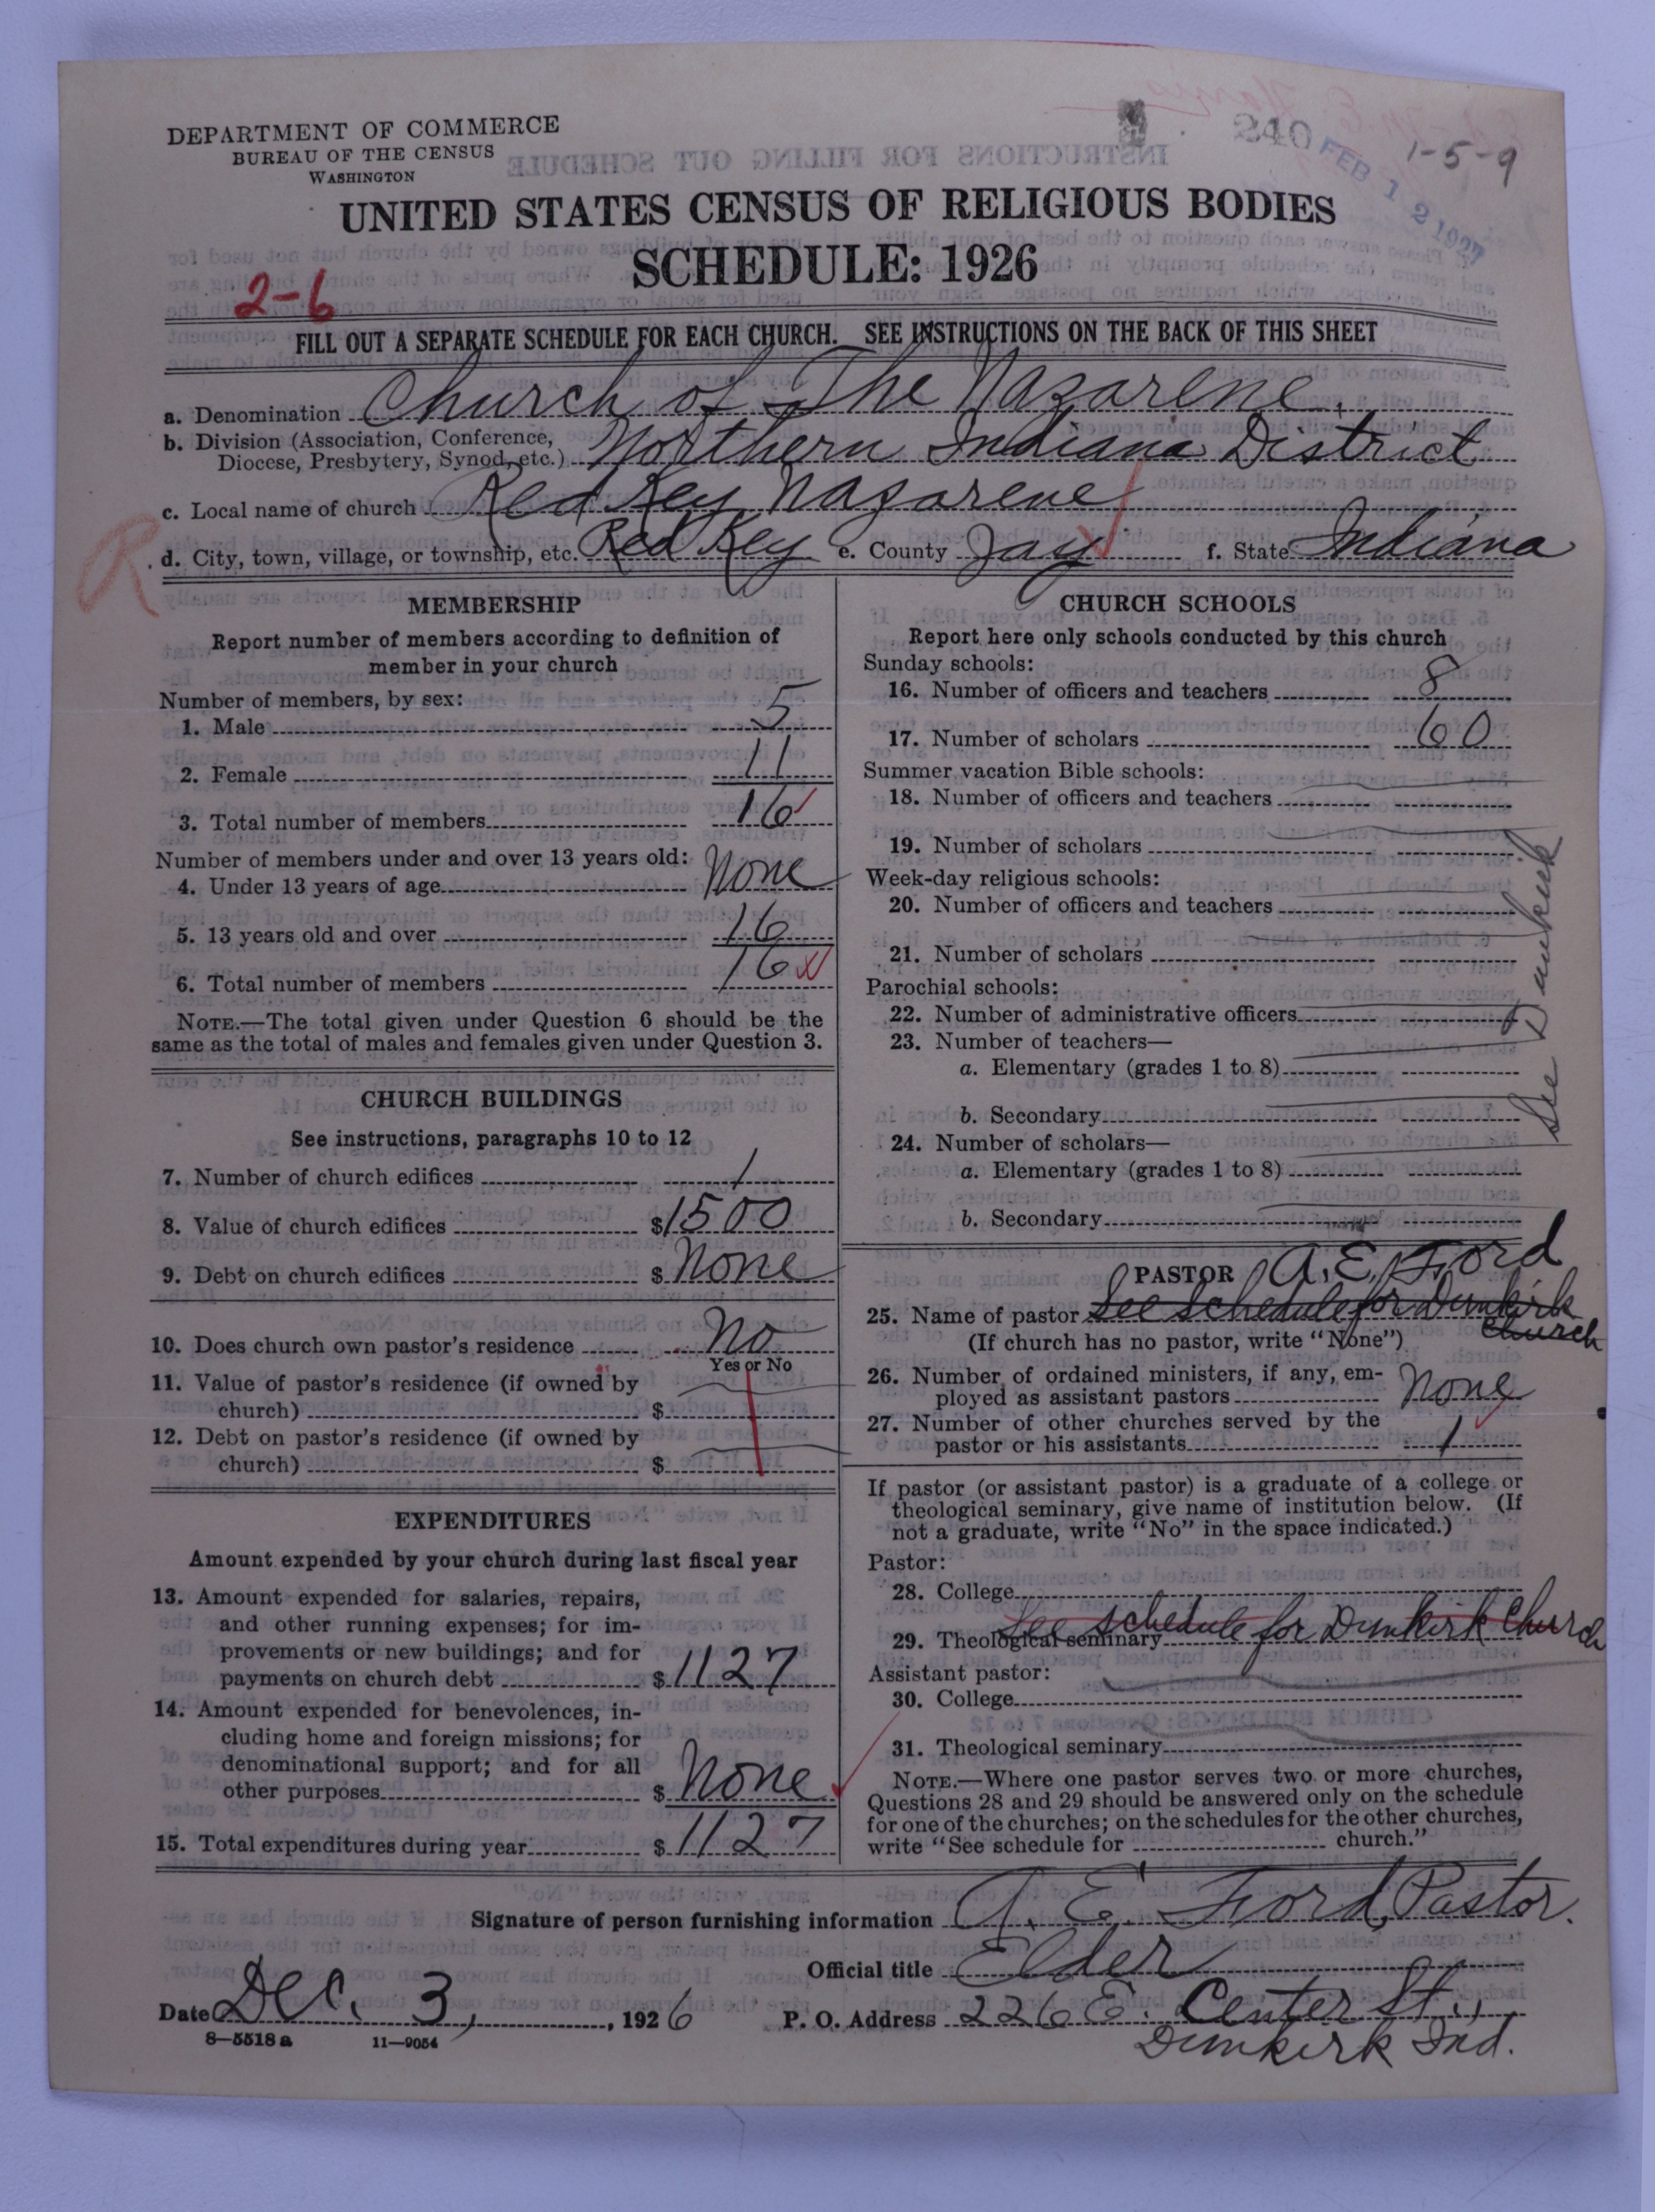 DEPARTMENT OF COMMERCE
BUREAU OF THE CENSUS
WASHINGTON
240
FEB 12 1927
1-5-9
UNITED STATES CENSUS OF RELIGIOUS BODIES
SCHEDULE: 1926
2-6
FILL OUT A SEPARATE SCHEDULE FOR EACH CHURCH. SEE INSTRUCTIONS ON THE BACK OF THIS SHEET
a. Denomination Church of The Nazarene,
b. Division (Association, Conference, Diocese, Presbytery, Synod, etc.) Northern Indiana District
c. Local name of church Red Key Nazarene
R
d. City, town, village, or township, etc. Red Key e. County Jay f. State Indiana
MEMBERSHIP
Report number of members according to definition of
member in your church
Number of members, by sex:
1. Male 5
2. Female 11
3. Total number of members 16
Number of members under and over 13 years old:
4. Under 13 years of age None
5. 13 years old and over 16
6. Total number of members 16
NOTE.—The total given under Question 6 should be the
same as the total of males and females given under Question 3.
CHURCH BUILDINGS
See instructions, paragraphs 10 to 12
7. Number of church edifices 1
8. Value of church edifices $1500
9. Debt on church edifices $None
10. Does church own pastor's residence No
Yes or No
11. Value of pastor's residence (if owned by
church) $
12. Debt on pastor's residence (if owned by
church) $
EXPENDITURES
Amount expended by your church during last fiscal year
13. Amount expended for salaries, repairs,
and other running expenses; for im-
provements or new buildings; and for
payments on church debt $1127
14. Amount expended for benevolences, in-
cluding home and foreign missions; for
denominational support; and for all
other purposes $None
15. Total expenditures during year $1127
CHURCH SCHOOLS
Report here only schools conducted by this church
Sunday schools:
16. Number of officers and teachers 8
17. Number of scholars 60
Summer vacation Bible schools:
18. Number of officers and teachers
19. Number of scholars
Week-day religious schools:
20. Number of officers and teachers
21. Number of scholars
Parochial schools:
22. Number of administrative officers
23. Number of teachers—
a. Elementary (grades 1 to 8)
b. Secondary
24. Number of scholars—
a. Elementary (grades 1 to 8)
b. Secondary
See Dunkirk
PASTOR A. E. Ford
25. Name of pastor See schedule for Dunkirk
church
(If church has no pastor, write "None")
26. Number of ordained ministers, if any, em-
ployed as assistant pastors None
27. Number of other churches served by the
pastor or his assistants 1
If pastor (or assistant pastor) is a graduate of a college or
theological seminary, give name of institution below. (If
not a graduate, write "No" in the space indicated.)
Pastor:
28. College
See schedule for Dunkirk Church
29. Theological seminary
Assistant pastor:
30. College
31. Theological seminary
NOTE.—Where one pastor serves two or more churches,
Questions 28 and 29 should be answered only on the schedule
for one of the churches; on the schedules for the other churches,
write "See schedule for church."
Signature of person furnishing information A. E. Ford, Pastor.
Official title Elder
Date Dec. 3, 1926 P. O. Address 226 E. Center St.,
Dunkirk Ind.
8—5518 a 11—9054